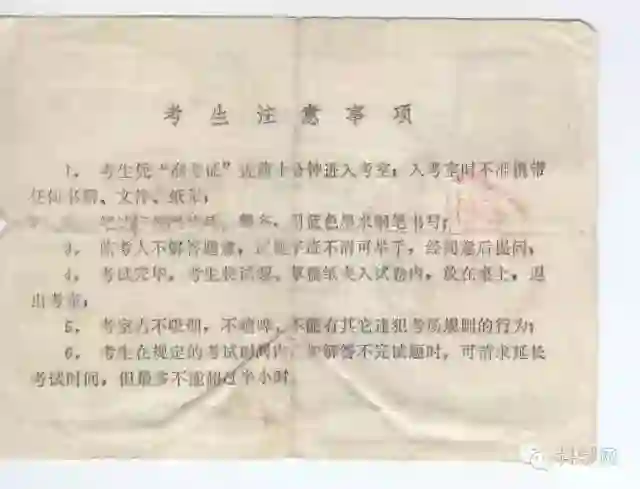 考生注意事项
1、考生凭“准考证”提前十分钟进入考室；入考室时不准携带
任何书籍、文件、纸张；
用蓝色墨水钢笔书写；
3、监考人不解答题意，试题字迹不清可举手，经同意后提问；
4、考试完毕，考生将试题、草稿纸夹入试卷内，放在桌上，退
出考室；
5、考室内不吸烟，不喧哗，不能有其它违犯考场规则的行为；
6、考生在规定的考试时间内，如解答不完试题时，可请求延长
考试时间，但最多不准超过半小时。